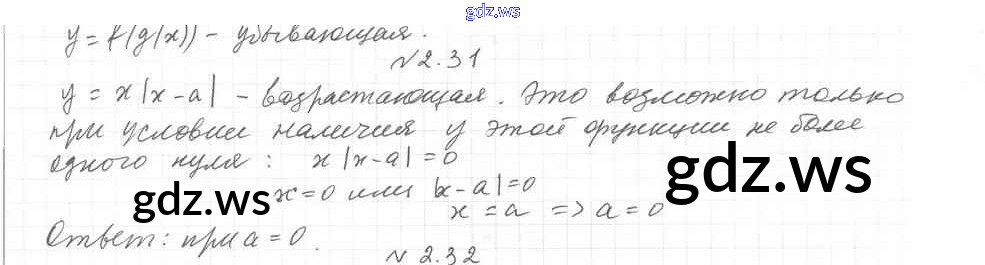 gdz.ws
y = f(g(x)) - убывающая.
№2.31
y = x|x-a| - возрастающая. Это возможно только
при условии наличия у этой функции не более
одного нуля: x|x-a| = 0
gdz.ws x=0 или |x-a|=0 gdz.ws
x = a => a = 0
Ответ: при a = 0.
№2.32